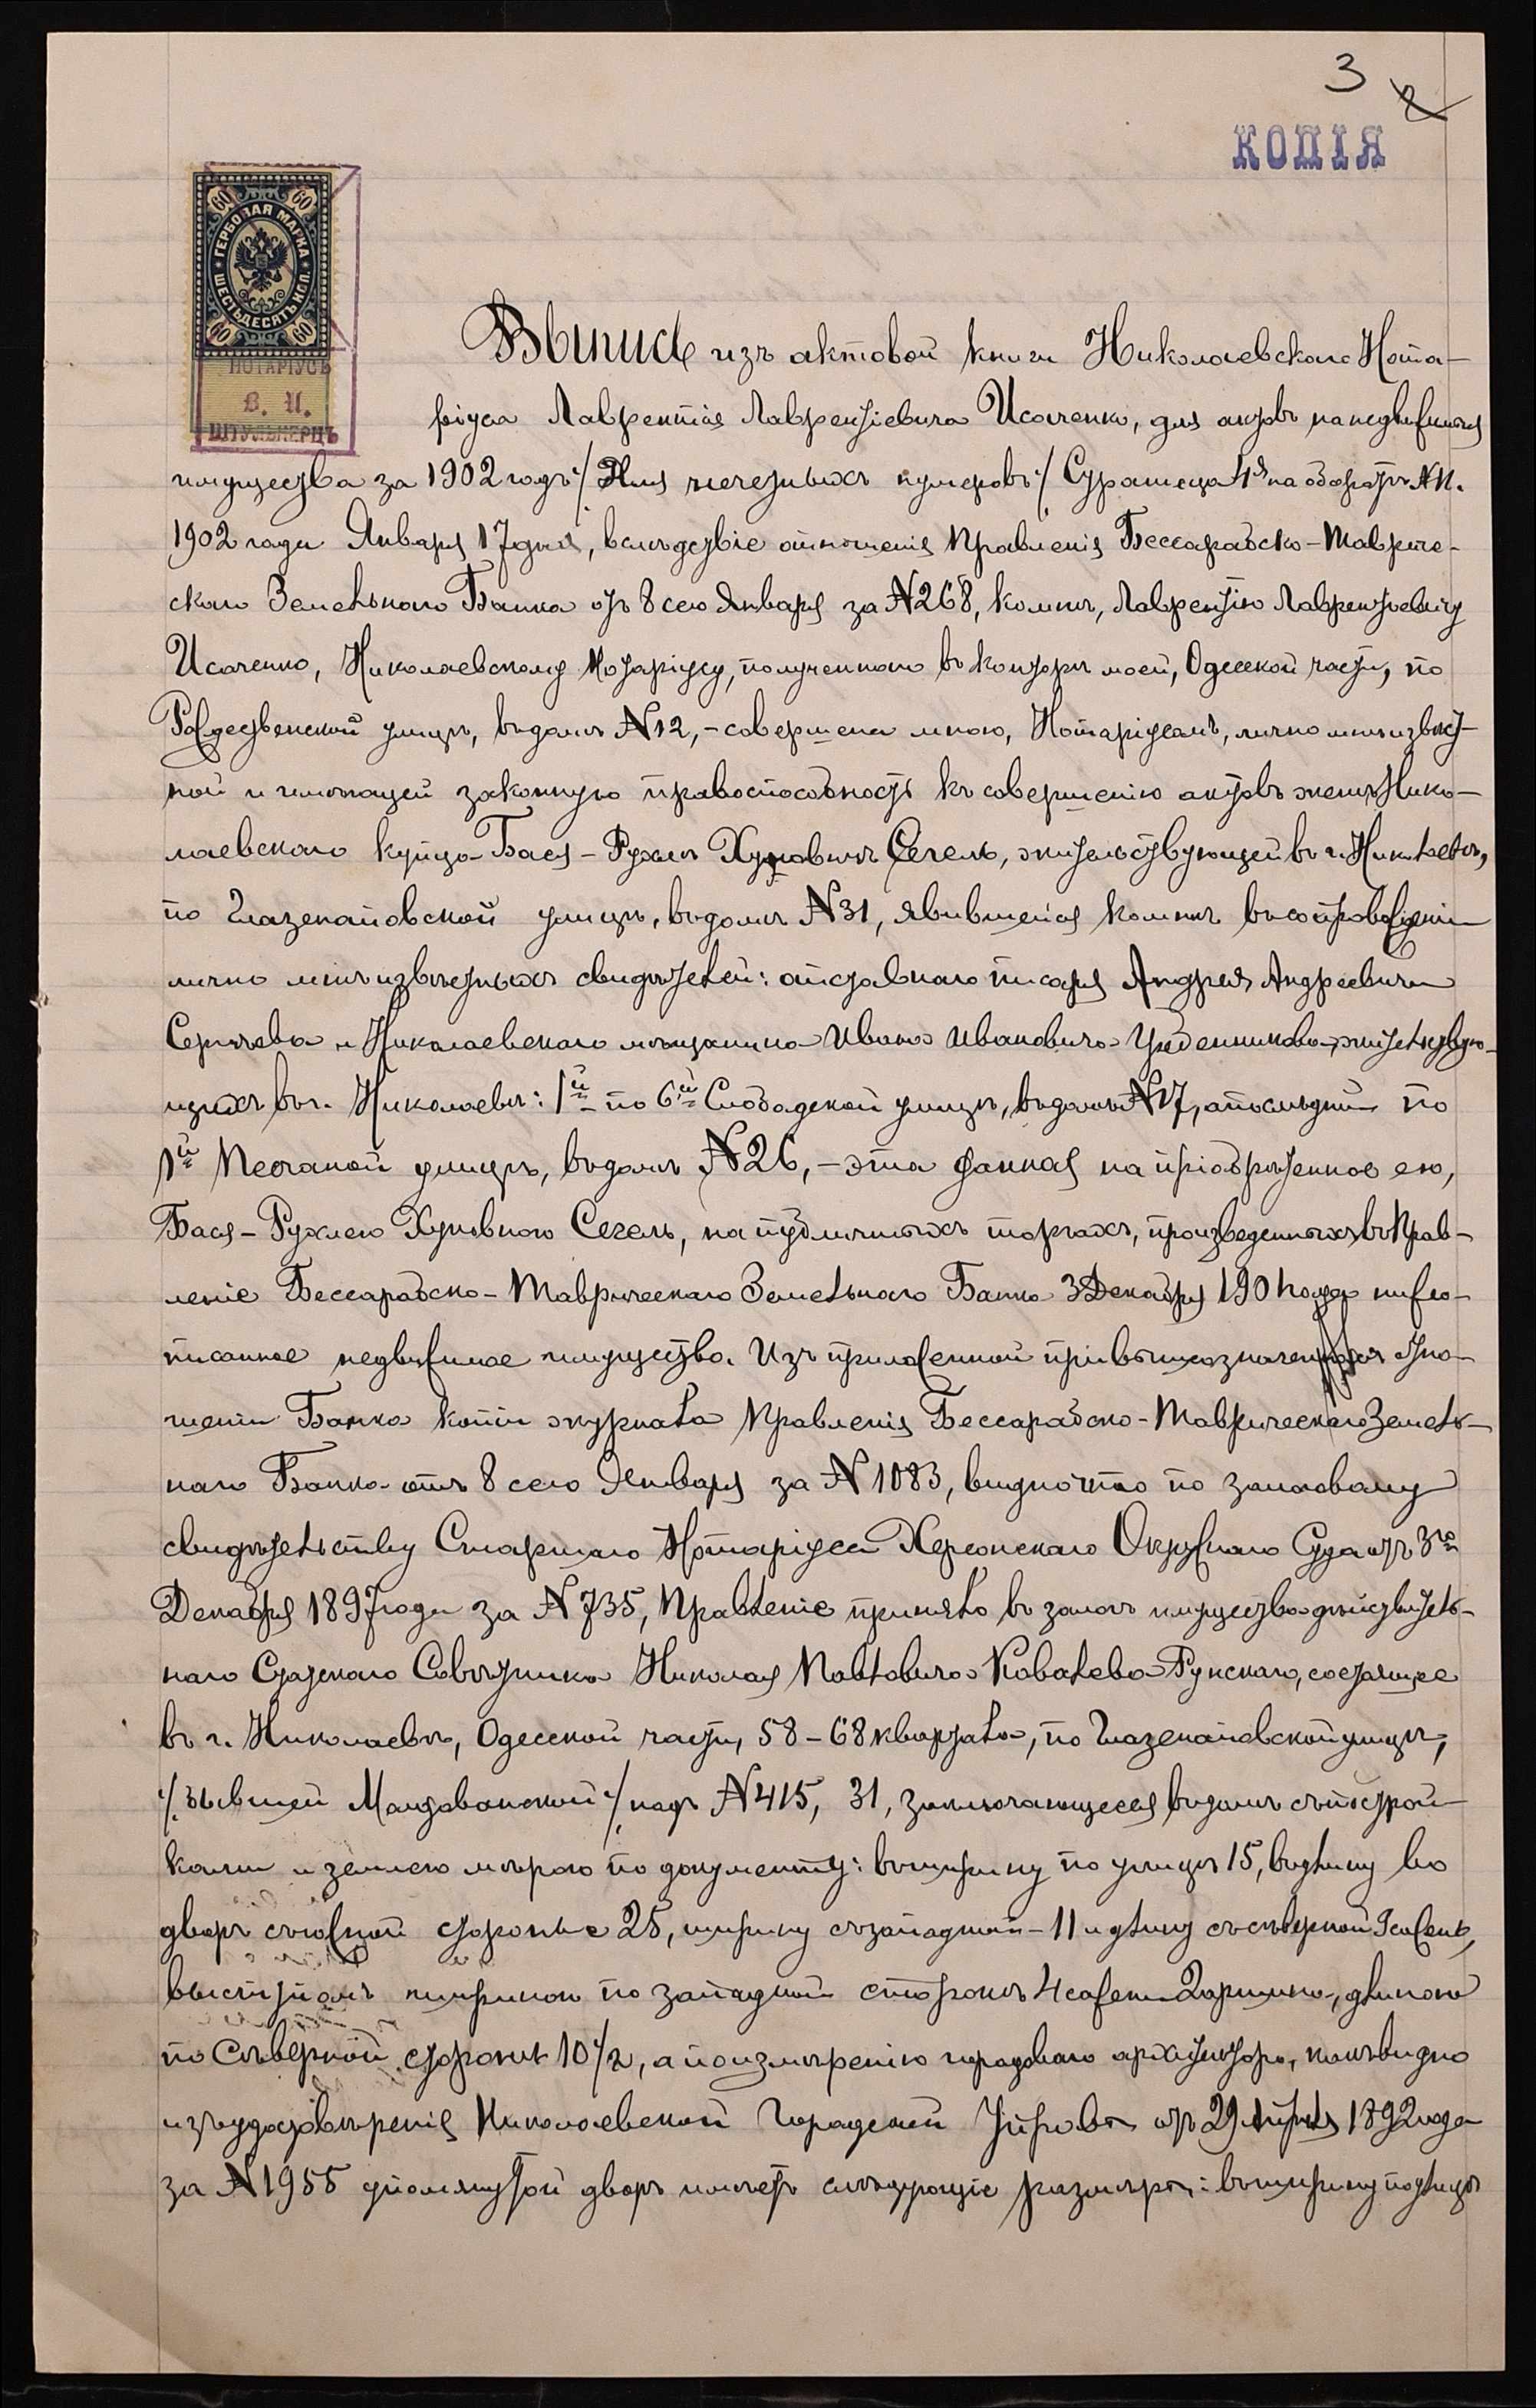 3 2
КОПІЯ
60 60
ГЕРБОВАЯ МАРКА
ШЕСТЬДЕСЯТЪ КОП.
60 60
НОТАРІУСЪ
В. И.
ШТУЛЬКЕРЦЪ
Выпись изъ актовой книги Николаевскаго Нота-
ріуса Лаврентія Лаврентіевича Исаченко, для актовъ на недвижимыя
имущества за 1902 годъ /: Для нечетныхъ нумеровъ :/ Страница 4я на оборотѣ №
1902 года Января 17 дня, вслѣдствіе отношенія Правленія Бессарабско-Тавриче-
скаго Земельнаго Банка отъ 8 сего Января за №268, ко мнѣ, Лаврентію Лаврентьевичу
Исаченко, Николаевскому Нотаріусу, полученнаго въ конторѣ моей, Одесской части, по
Рождественской улицѣ, въ домѣ №12, - совершена мною, Нотаріусомъ, лично мнѣ извѣст-
ной и имѣющей законную правоспособность къ совершенію актовъ женѣ Нико-
лаевскаго купца Бася-Рухлѣ Хуновнѣ Сегель, жительствующей въ г. Николаевѣ,
по Глазенаповской улицѣ, въ домѣ №31, явившейся ко мнѣ въ сопровожденіи
лично мнѣ извѣстныхъ свидѣтелей: отставнаго писаря Андрея Андреевича
и Николаевскаго мѣщанина Ивана Ивановича жительствую-
щихъ въ г. Николаевѣ: 1й по 6й Слободской улицѣ, въ домѣ №17, а послѣдній по
1й Песчаной улицѣ, въ домѣ №26, - эта данная на пріобрѣтенное ею,
Бася-Рухлею Хуновною Сегель, на публичныхъ торгахъ, произведенныхъ въ Прав-
леніе Бессарабско-Таврическаго Земельнаго Банка 3 Декабря 1901 года ниже-
писанное недвижимое имущество. Изъ приложенной при вышеозначенномъ отно-
шеніи Банка копіи журнала Правленія Бессарабско-Таврическаго Земель-
наго Банка отъ 8 сего Января за №1083, видно что по залоговому
свидѣтельству Старшаго Нотаріуса Херсонскаго Окружнаго Суда отъ 3го
Декабря 1897 года за №735, Правленіе приняло въ залогъ имущество дѣйствитель-
наго Статскаго Совѣтника Николая Павловича Ковалева-Рунскаго, состоящее
въ г. Николаевѣ, Одесской части, 58-68 квартала, по Глазенаповской улицѣ,
/: бывшей Молдованской :/ подъ №415, 31, заключающееся въ домѣ съ построй-
ками и землею мѣрою по документу: въ ширину по улицѣ 15, въ длину во
дворъ съ южной стороны 25, ширину съ западной - 11 и длину съ сѣверной сажень,
выступомъ шириною по западной сторонѣ 4 сажени 2 аршина, длиною
по Сѣверной сторонѣ 10 1/2, а по измѣренію городоваго архитектора, какъ видно
изъ удостовѣренія Николаевской Городской Управы отъ 29 Апрѣля 1892 года
за №1955 упомянутой дворъ имѣетъ слѣдующіе размѣры: въ ширину по улицѣ